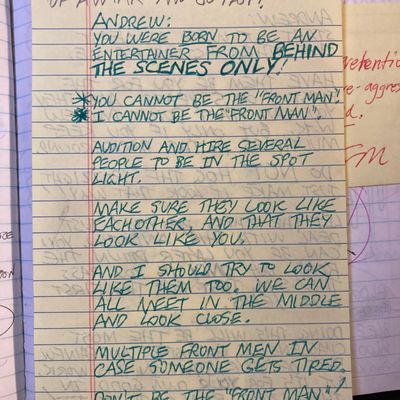 ANDREW:
YOU WERE BORN TO BE AN
ENTERTAINER FROM BEHIND
THE SCENES ONLY!
*YOU CANNOT BE THE "FRONT MAN".
*I CANNOT BE THE "FRONT MAN".
AUDITION AND HIRE SEVERAL
PEOPLE TO BE IN THE SPOT
LIGHT.
MAKE SURE THEY LOOK LIKE
EACHOTHER, AND THAT THEY
LOOK LIKE YOU.
AND I SHOULD TRY TO LOOK
LIKE THEM TOO. WE CAN
ALL MEET IN THE MIDDLE
AND LOOK CLOSE.
MULTIPLE FRONT MEN IN
CASE SOMEONE GETS TIRED.
DON'T BE THE "FRONT MAN"!